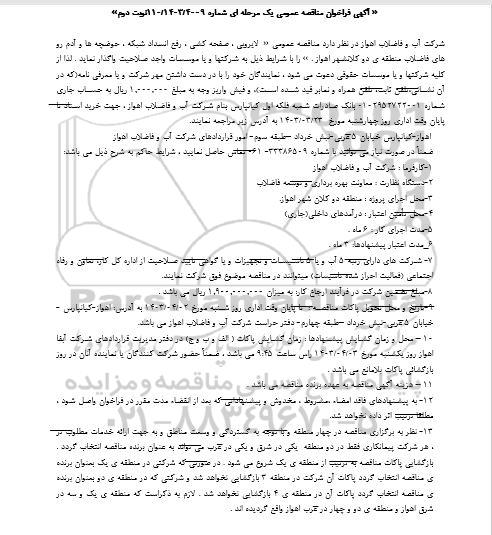 « آگهی فراخوان مناقصه عمومی یک مرحله ای شماره ۱۱/۱۴۰۳/۴۰۰۹ (نوبت دوم»
شرکت آب و فاضلاب اهواز در نظر دارد مناقصه عمومی « لایروبی ، صفحه کشی ، رفع انسداد شبکه ، حوضچه ها و آدم رو
های فاضلاب منطقه ی دو کلانشهر اهواز . » را با شرایط ذیل به شرکتها و یا موسسات واجد صلاحیت واگذار نماید . لذا از
کلیه شرکتها و یا موسسات حقوقی دعوت می شود ، نمایندگان خود را با در دست داشتن مهر شرکت و یا معرفی نامه(که در
آن نشانی،تلفن ثابت، تلفن همراه و نمابر قید شده است)، و فیش واریز وجه به مبلغ ۱,۰۰۰,۰۰۰ ریال به حساب جاری
شماره بانک صادرات شعبه فلکه اول کیانپارس بنام شرکت آب و فاضلاب اهواز ، جهت خرید اسناد تا
پایان وقت اداری روز چهارشنبه مورخ ۱۴۰۳/۰۳/۲۳ به آدرس زیر مراجعه نمایند.
اهواز-کیانپارس خیابان ۵ غربی-نبش خرداد –طبقه سوم- امور قراردادهای شرکت آب و فاضلاب اهواز
ضمناً در صورت نیاز می توانید با شماره ۳۳۳۸۶۵۰۹-۰۶۱ تماس حاصل نمایید ، شرایط حاکم به شرح ذیل می باشد:
۱-کارفرما : شرکت آب و فاضلاب اهواز
۲-دستگاه نظارت : معاونت بهره برداری و توسعه فاضلاب
۳-محل اجرای پروژه : منطقه دو کلان شهر اهواز.
۴-محل تأمین اعتبار : درآمدهای داخلی(جاری)
۵-مدت اجرای کار : ۶ ماه .
۶_مدت اعتبار پیشنهادها: ۳ ماه .
۷- شرکت های دارای رتبه ۵ آب و یا ۵ تاسیسات و تجهیزات و یا گواهی تایید صلاحیت از اداره کل کار، تعاون و رفاه
اجتماعی (فعالیت اجراز شده تاسیسات) میتوانند در مناقصه موضوع فوق شرکت نمایند.
۸-مبلغ تضمین شرکت در فرآیند ارجاع کار: به میزان ۱,۹۰۰,۰۰۰,۰۰۰ ریال می باشد .
۹-تاریخ و محل تحویل پاکات مناقصه- تا پایان وقت اداری روز شنبه مورخ ۱۴۰۳/۰۴/۰۲ به آدرس: اهواز-کیانپارس -
خیابان ۵ غربی-نبش خرداد –طبقه چهارم- دفتر حراست شرکت آب و فاضلاب اهواز می باشد.
۱۰- محل و زمان گشایش پیشنهادها : زمان گشایش پاکات ( الف و ب و ج) در دفتر مدیریت قراردادهای شرکت آبفا
اهواز روز یکشنبه مورخ ۱۴۰۳/۰۴/۰۳ راس ساعت ۹:۴۵ می باشد ، ضمناً حضور شرکت کنندگان یا نماینده آنان در روز
بازگشائی پاکات بلامانع می باشد .
۱۱- هزینه آگهی مناقصه به عهده برنده مناقصه می باشد.
۱۲- به پیشنهادهای فاقد امضاء ،مشروط ، مخدوش و پیشنهاداتی که بعد از انقضاء مدت مقرر در فراخوان واصل شود ،
مطلقا ترتیب اثر داده نخواهد شد.
۱۳- نظر به برگزاری مناقصه در چهار منطقه و با توجه به گستردگی و وسعت مناطق و به جهت ارائه خدمات مطلوب تر
، هر شرکت پیمانکاری فقط در دو منطقه یکی در شرق و یکی در غرب می تواند به عنوان برنده مناقصه انتخاب گردد .
بازگشایی پاکات مناقصه به ترتیب از منطقه ی یک شروع می شود . در صورتی که شرکتی در منطقه ی یک بعنوان برنده
ی مناقصه انتخاب گردد پاکات آن شرکت در منطقه ۳ بازگشایی نخواهد شد و شرکتی که در منطقه ی دو بعنوان برنده
ی مناقصه انتخاب گردد پاکات آن در منطقه ی ۴ بازگشایی نخواهد شد . لازم به ذکراست که منطقه ی یک و سه در
شرق اهواز و منطقه ی دو و چهار در غرب اهواز واقع گردیده اند .